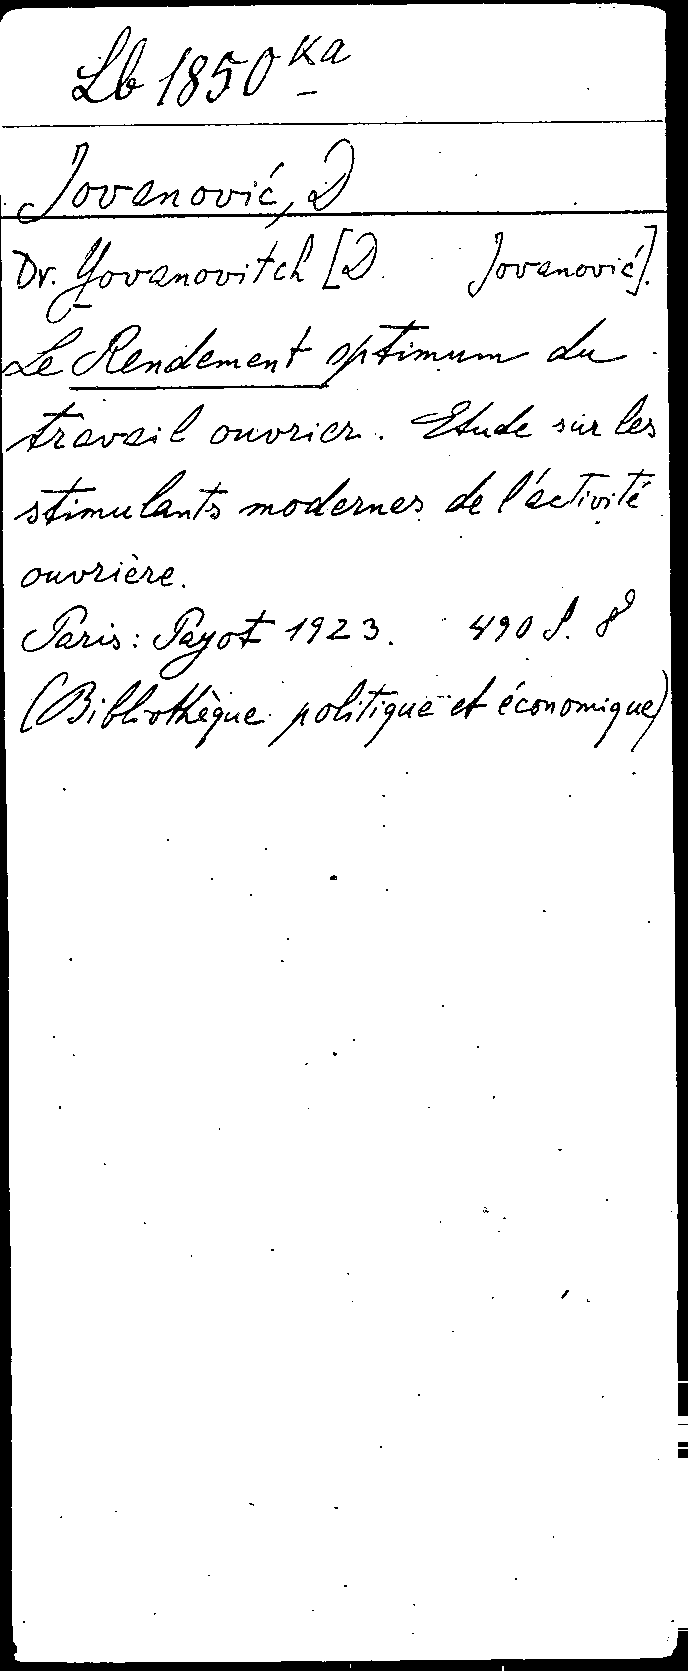 Lb 1850 ka
Jovanović, D
Dr. Yovanovitch [D. Jovanović].
Le Rendement optimum du
travail ouvrier. Etude sur les
stimulants modernes de l'activité
ouvrière.
Paris: Payot 1923. 490 S. 8
(Bibliothèque politique et économique)